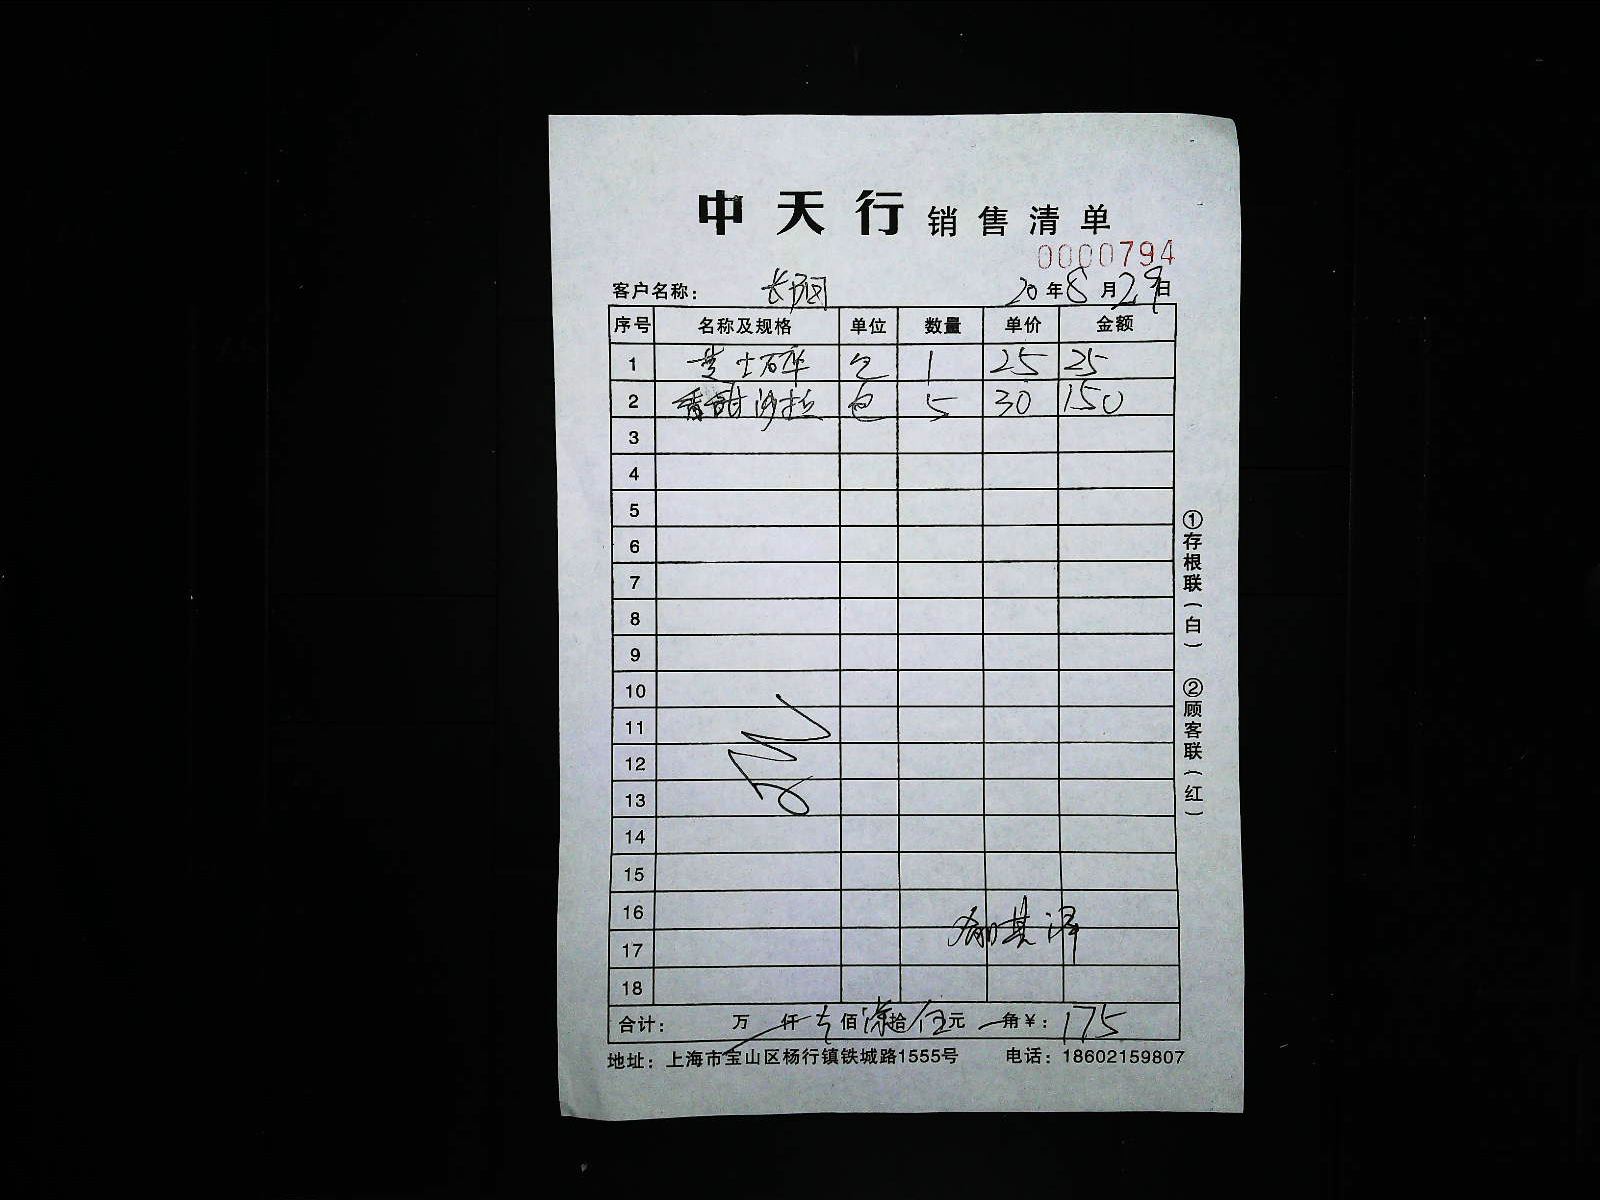 中天行销售清单
0000794
客户名称： 20年8月29日
序号 名称及规格 单位 数量 单价 金额
1 芝士碎 包 1 25 25
2 香甜沙拉 包 5 30 150
3
4
5
6
7
8
9
10
11
12
13
14
15
16
17
18
合计： 万 仟 佰 拾伍元 角￥：175
地址：上海市宝山区杨行镇铁城路1555号 电话：18602159807
①存根联（白） ②顾客联（红）